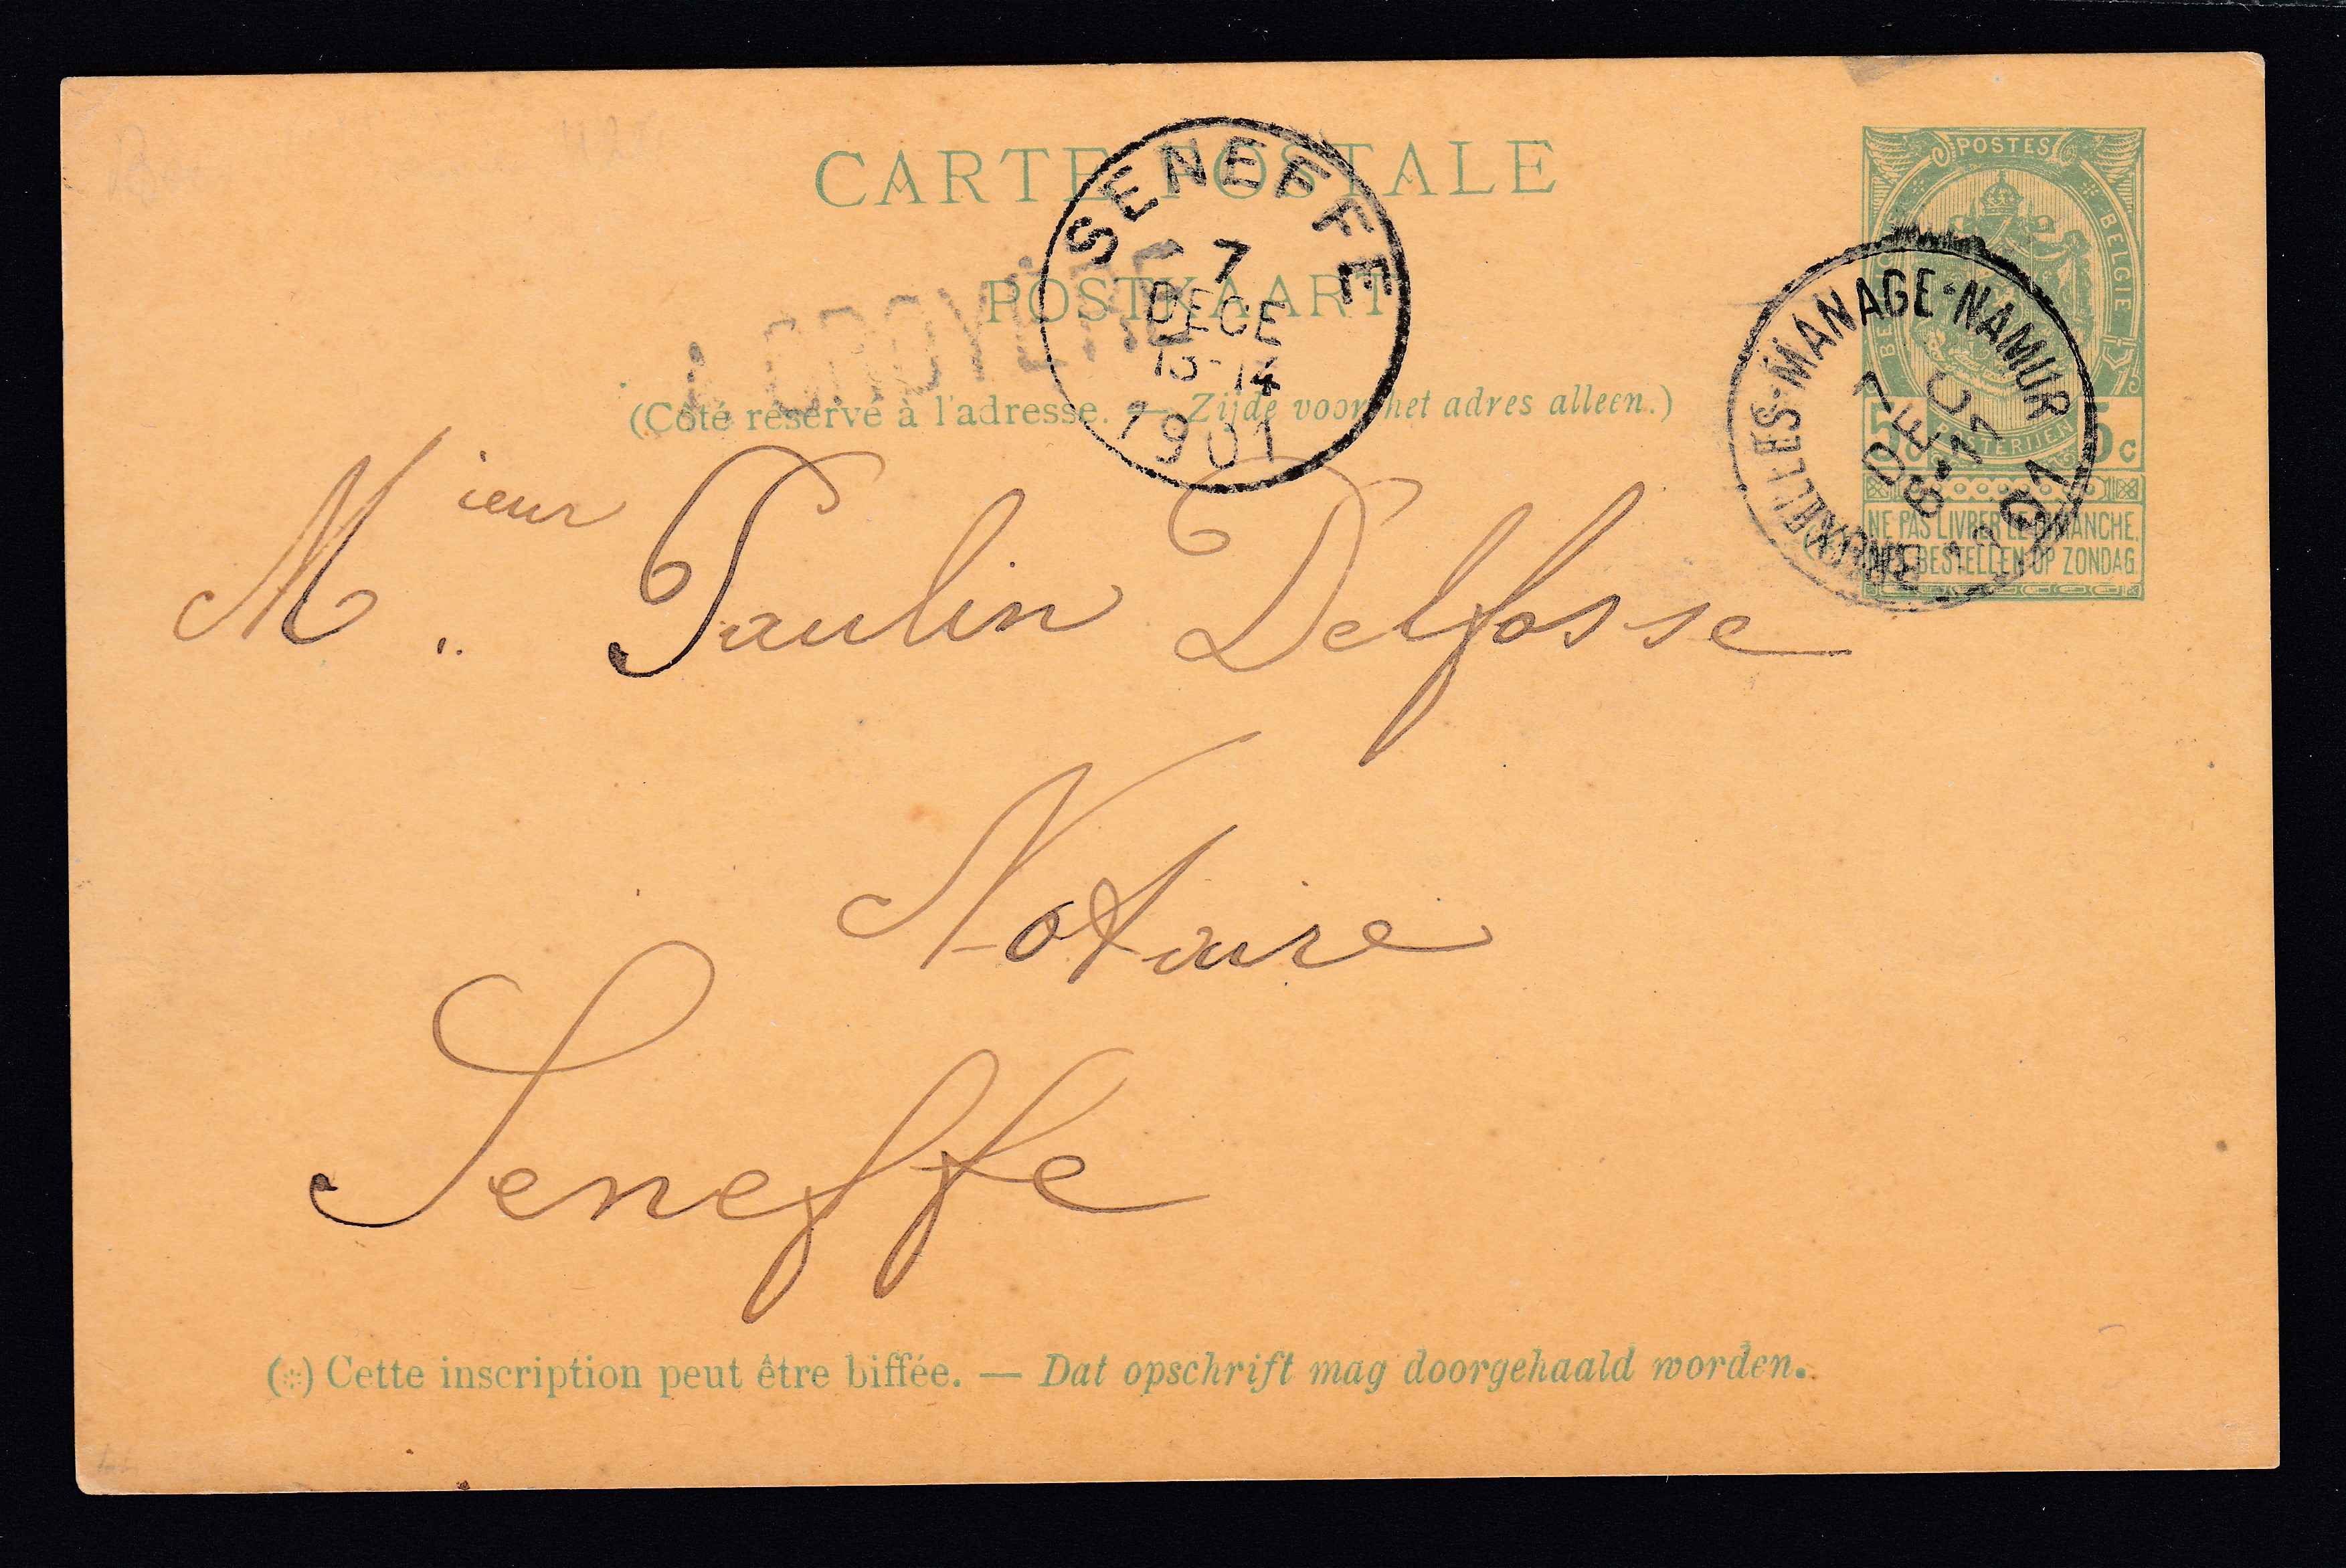 CARTE POSTALE
POSTKAART
(Côté réservé à l'adresse. — Zijde voor het adres alleen.)
SENEFFE
7
DECE
13-14
1901
POSTES
BELGIE
POSTERIJEN
5c 5c
NE PAS LIVRER LE DIMANCHE.
BESTELLEN OP ZONDAG
BRUXELLES-MANAGE-NAMUR
7 DE
1901
Mieur Paulin Delfosse
Notaire
Seneffe
(*) Cette inscription peut être biffée. — Dat opschrift mag doorgehaald worden.